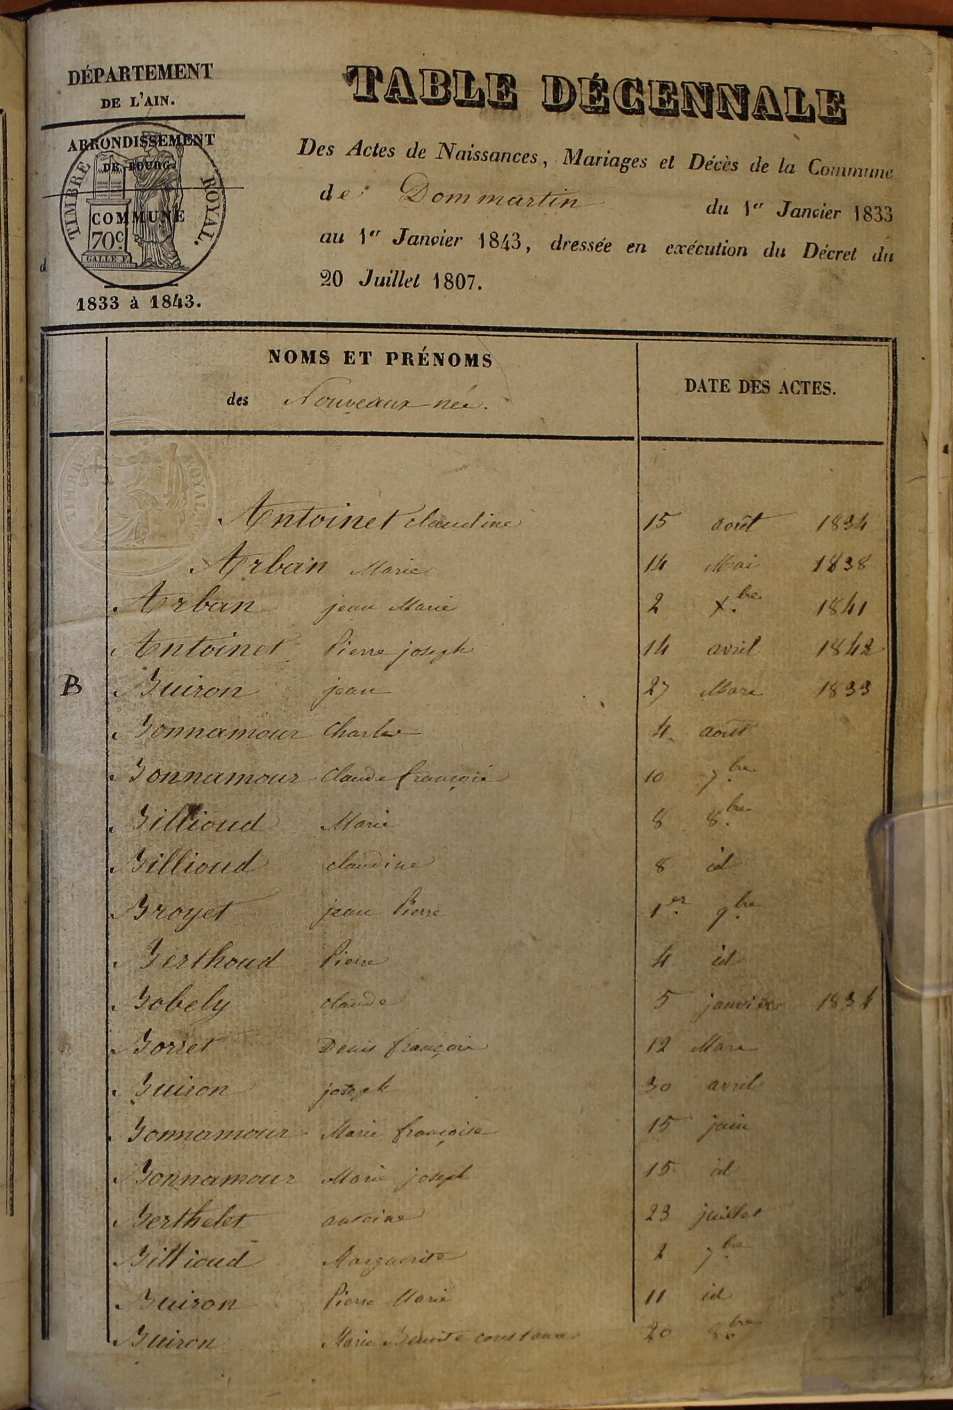 DÉPARTEMENT
DE L'AIN.
ARRONDISSEMENT
DE BOURG
TIMBRE ROYAL.
COMMUNE
70c
d
1833 à 1843.
TABLE DÉCENNALE
Des Actes de Naissances, Mariages et Décès de la Commune
de Dommartin du 1er Janvier 1833
au 1er Janvier 1843, dressée en exécution du Décret du
20 Juillet 1807.
NOMS ET PRÉNOMS
des Nouveaux née.
DATE DES ACTES.
Antoinet claudine 15 août 1834
Arban Marie 14 Mai 1838
Arban jean Marie 2 Xbre 1841
Antoinet Pierre joseph 14 avril 1842
B Buiron jean 27 Mars 1833
Bonnamour Charles 4 août
Bonnamour Claude françois 10 7bre
Billioud Marie 8 8bre
Billioud claudine 8 id
Broyet jean Pierre 1er 9bre
Berthoud Pierre 4 id
Bobely claude 5 janvier 1834
Borret Denis françois 12 Mars
Buiron joseph 30 avril
Bonnamour Marie françoise 15 juin
Bonnamour Marie joseph 15 id
Berthelet antoine 23 juillet
Billioud Marguerite 2 7bre
Buiron Pierre Marie 11 id
Buiron Marie Benoite constance 20 8bre